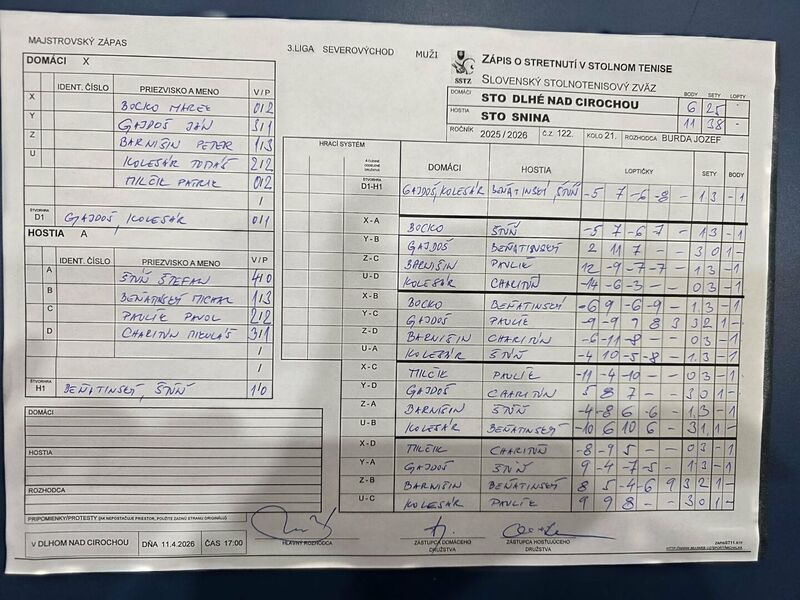 MAJSTROVSKÝ ZÁPAS
3.LIGA SEVEROVÝCHOD MUŽI
SSTZ
ZÁPIS O STRETNUTÍ V STOLNOM TENISE
SLOVENSKÝ STOLNOTENISOVÝ ZVÄZ
BODY SETY LOPTY
DOMÁCI STO DLHÉ NAD CIROCHOU 6 25 -
HOSTIA STO SNINA 11 38 -
ROČNÍK 2025/2026 Č.Z. 122. KOLO 21. ROZHODCA BURDA JOZEF
DOMÁCI X
IDENT. ČÍSLO PRIEZVISKO A MENO V / P
X BOCKO MAREK 0/2
Y GAJDOŠ JÁN 3/1
Z BARNIŠIN PETER 1/3
U KOLESÁR TOMÁŠ 2/2
MILČIK PATRIK 0/2
/
ŠTVORHRA D1 GAJDOŠ, KOLESÁR 0/1
HOSTIA A
IDENT. ČÍSLO PRIEZVISKO A MENO V / P
A ŠTŮŇ ŠTEFAN 4/0
B BEŇATINSKÝ MICHAL 1/3
C PAVLÍK PAVOL 2/2
D CHARITUN MIKULÁŠ 3/1
/
/
ŠTVORHRA H1 BEŇATINSKÝ, ŠTŮŇ 1/0
DOMÁCI
HOSTIA
ROZHODCA
PRIPOMIENKY/PROTESTY (AK NEPOSTAČUJE PRIESTOR, POUŽITE ZADNÚ STRANU ORIGINÁLU)
V DLHOM NAD CIROCHOU DŇA 11.4.2026 ČAS 17:00
HRACÍ SYSTÉM
DOMÁCI HOSTIA LOPTIČKY SETY BODY
ŠTVORHRA D1-H1 GAJDOŠ, KOLESÁR BEŇATINSKÝ, ŠTŮŇ -5 7 -6 -8 - 1 3 - 1
X-A BOCKO ŠTŮŇ -5 7 -6 -7 - 1 3 - 1
Y-B GAJDOŠ BEŇATINSKÝ 2 11 7 - - 3 0 1 -
Z-C BARNIŠIN PAVLÍK 12 -9 -7 -7 - 1 3 - 1
U-D KOLESÁR CHARITUN -14 -6 -3 - - 0 3 - 1
X-B BOCKO BEŇATINSKÝ -6 9 -6 -9 - 1 3 - 1
Y-C GAJDOŠ PAVLÍK -9 -9 9 8 3 3 2 1 -
Z-D BARNIŠIN CHARITUN -6 -11 -8 - - 0 3 - 1
U-A KOLESÁR ŠTŮŇ -4 10 -5 -8 - 1 3 - 1
X-C MILČIK PAVLÍK -11 -4 -10 - - 0 3 - 1
Y-D GAJDOŠ CHARITUN 5 8 7 - - 3 0 1 -
Z-A BARNIŠIN ŠTŮŇ -4 -8 6 -6 - 1 3 - 1
U-B KOLESÁR BEŇATINSKÝ -10 6 10 6 - 3 1 1 -
X-D MILČIK CHARITUN -8 -9 -5 - - 0 3 - 1
Y-A GAJDOŠ ŠTŮŇ 9 -4 -7 -5 - 1 3 - 1
Z-B BARNIŠIN BEŇATINSKÝ 8 5 -4 -6 9 3 2 1 -
U-C KOLESÁR PAVLÍK 9 9 8 - - 3 0 1 -
HLAVNÝ ROZHODCA
ZÁSTUPCA DOMÁCEHO DRUŽSTVA
ZÁSTUPCA HOSŤUJÚCEHO DRUŽSTVA